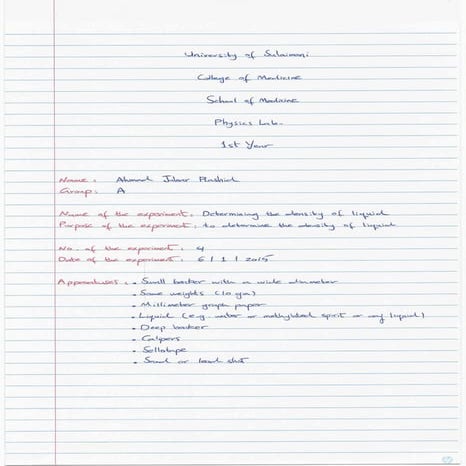 University of Sulaimani
College of Medicine
School of Medicine
Physics Lab.
1st Year
Name : Ahmad Jabar Rashid
Group : A
Name of the experiment : Determining the density of liquid
Purpose of the experiment : to determine the density of liquid
No. of the experiment : 4
Date of the experiment : 6 / 1 / 2015
Apparatuses : • Small beaker with a wide diameter
• Some weights (10 gm)
• Millimeter graph paper
• Liquid (e.g. water or methylated spirit or any liquid)
• Deep beaker
• Calipers
• Sellotape
• Sand or lead shot